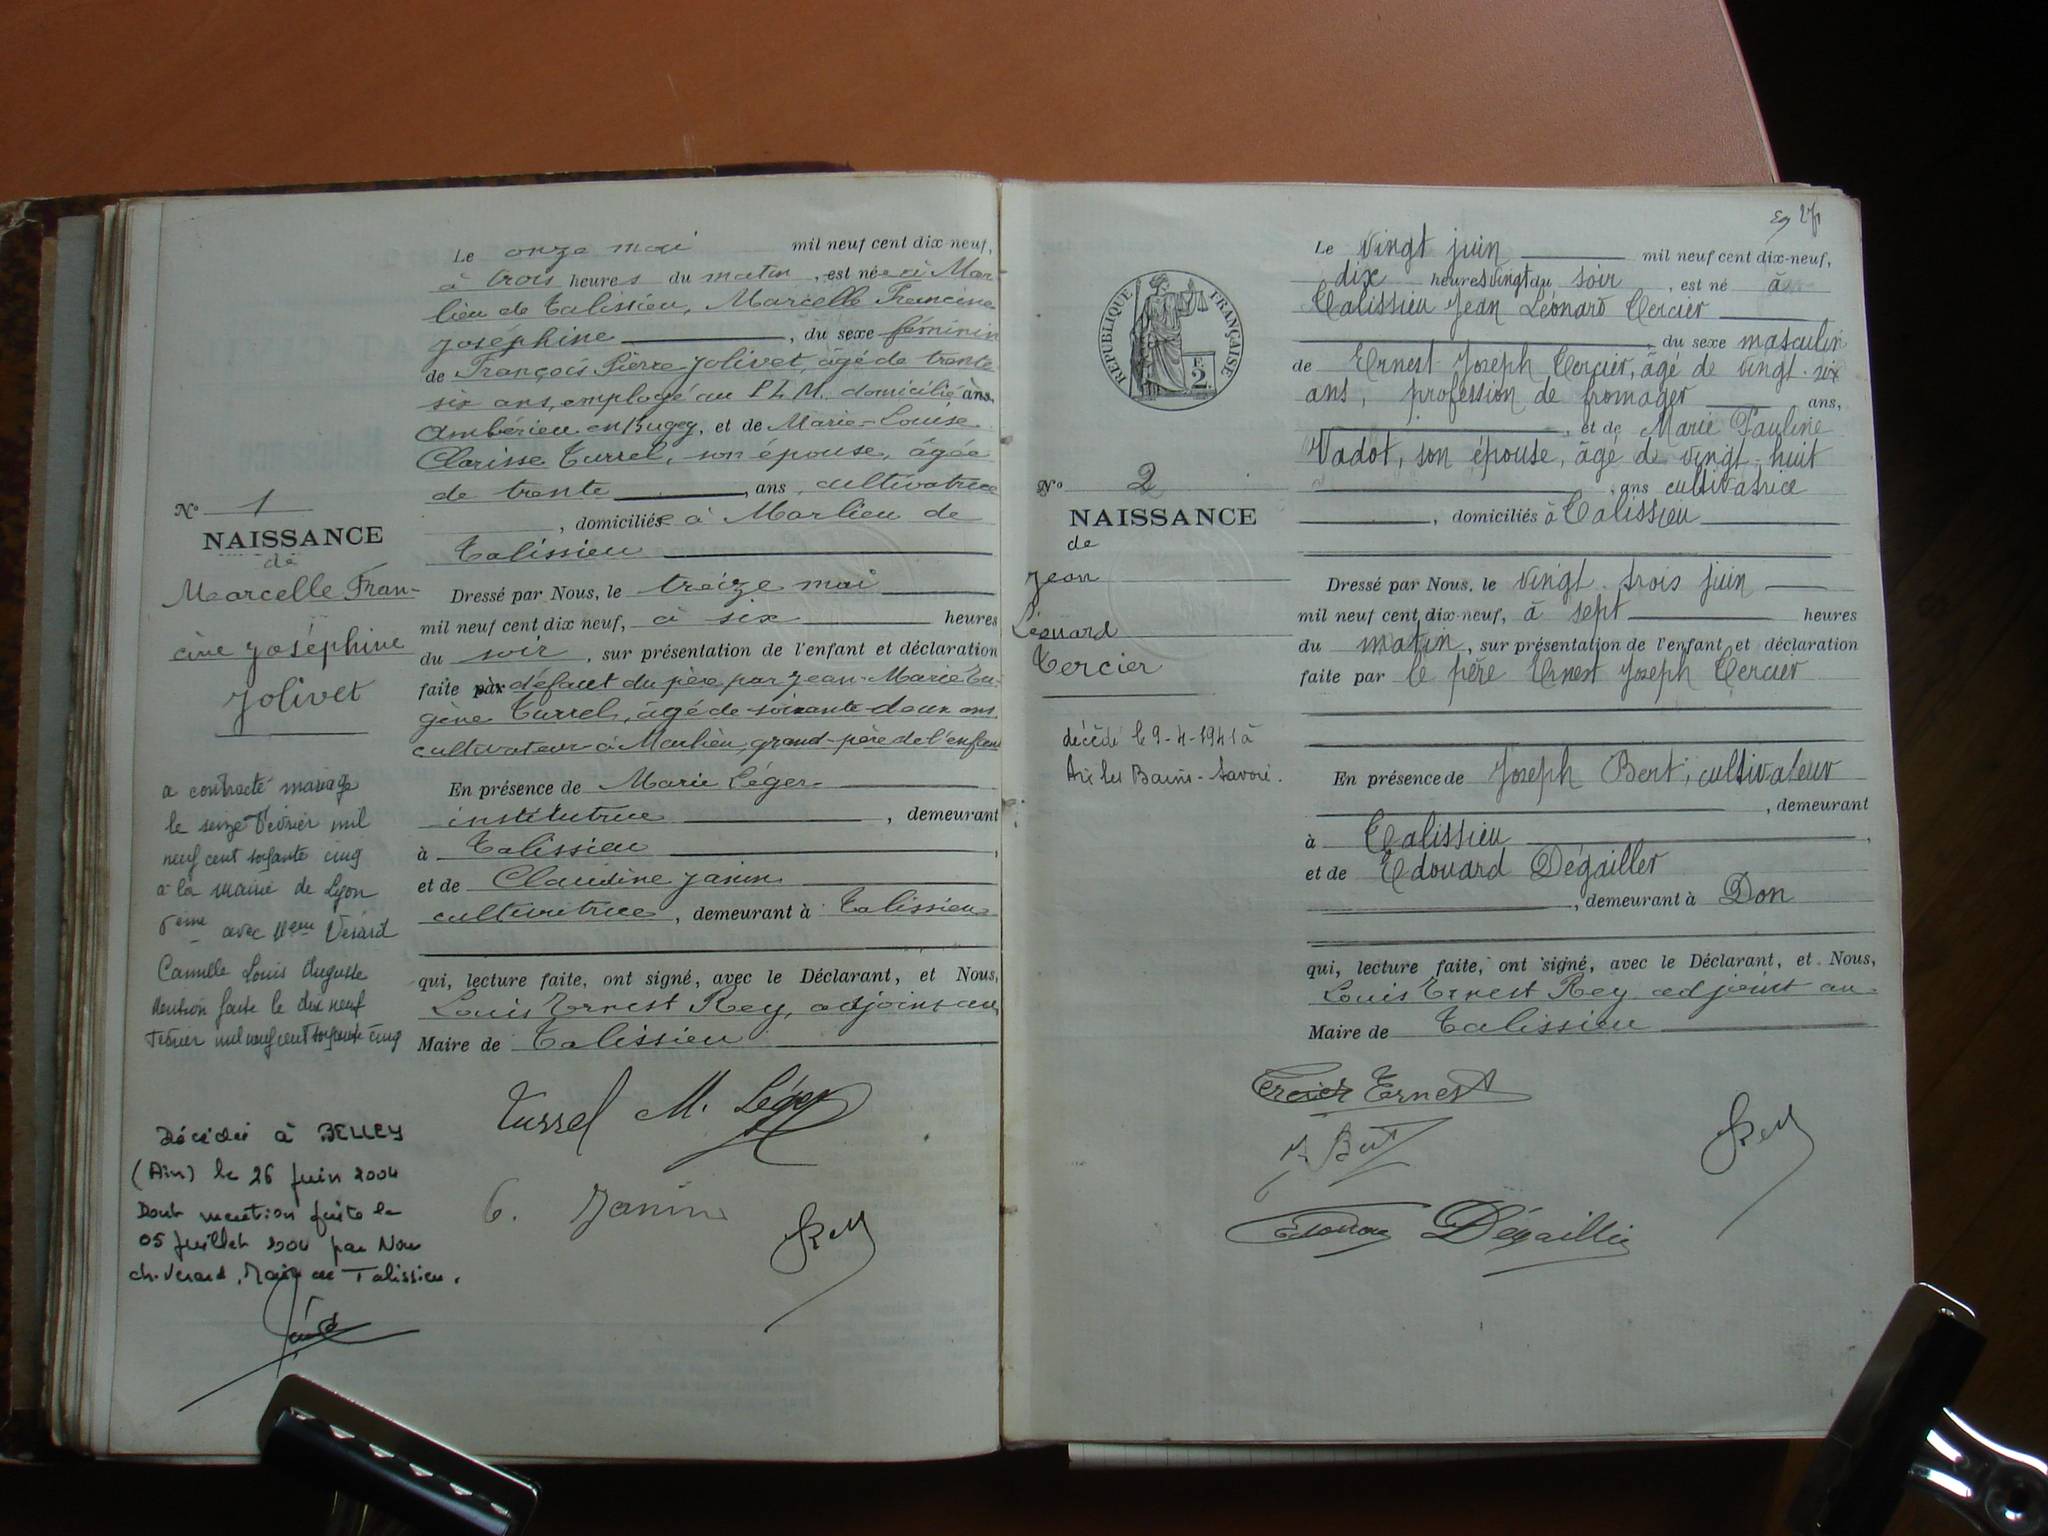 Le onze mai mil neuf cent dix-neuf,
à trois heures du matin, est née à Mar-
lieu de Talissieu, Marcelle Francine
Joséphine, du sexe féminin
de François Pierre Jolivet, âgé de trente
six ans, employé au P L M. domicilié ans,
Ambérieu en Bugey, et de Marie-Louise
Clarisse Turrel, son épouse, âgée
de trente, ans, cultivatrice
, domiciliée à Marlieu de
Talissieu
Nº 1
NAISSANCE
de
Marcelle Fran-
cine Joséphine
Jolivet
Dressé par Nous, le treize mai
mil neuf cent dix neuf, à six heures
du soir, sur présentation de l'enfant et déclaration
faite par défaut du père par Jean-Marie Eu-
gène Turrel, âgé de soixante-deux ans
cultivateur à Marlieu, grand-père de l'enfant
En présence de Marie Léger
institutrice, demeurant
à Talissieu,
et de Claudine Janin
cultivatrice, demeurant à Talissieu
qui, lecture faite, ont signé, avec le Déclarant, et Nous,
Louis Ernest Rey, adjoint au
Maire de Talissieu
a contracté mariage
le seize Février mil
neuf cent soixante cinq
à la mairie de Lyon
avec Vérard
Camille Louis Auguste
Mention faite le dix neuf
Février mil neuf cent soixante cinq
Décédée à BELLEY
(Ain) le 26 juin 2004
Dont mention faite le
05 juillet 2004 par Nous
ch. Verard, Maire de Talissieu.
Turrel M. Léger
C. Janin
Rey
271
REPUBLIQUE FRANÇAISE
2
Le vingt juin mil neuf cent dix-neuf,
dix heures vingt du soir, est né à
Talissieu Jean Léonard Tercier
, du sexe masculin
de Ernest Joseph Tercier, âgé de vingt-six
ans, profession de fromager ans,
, et de Marie Pauline
Vadot, son épouse, âgé de vingt-huit
, ans cultivatrice
, domiciliés à Talissieu
Nº 2
NAISSANCE
de
Jean
Léonard
Tercier
décédé le 9-4-1941 à
Aix les Bains - Savoie.
Dressé par Nous, le vingt-trois juin
mil neuf cent dix-neuf, à sept heures
du matin, sur présentation de l'enfant et déclaration
faite par le père Ernest Joseph Tercier
En présence de Joseph Bert, cultivateur
, demeurant
à Talissieu,
et de Edouard Dégailler
, demeurant à Don
qui, lecture faite, ont signé, avec le Déclarant, et Nous,
Louis Ernest Rey adjoint au
Maire de Talissieu
Tercier Ernest
J Bert
Rey
Edouard Dégaillier